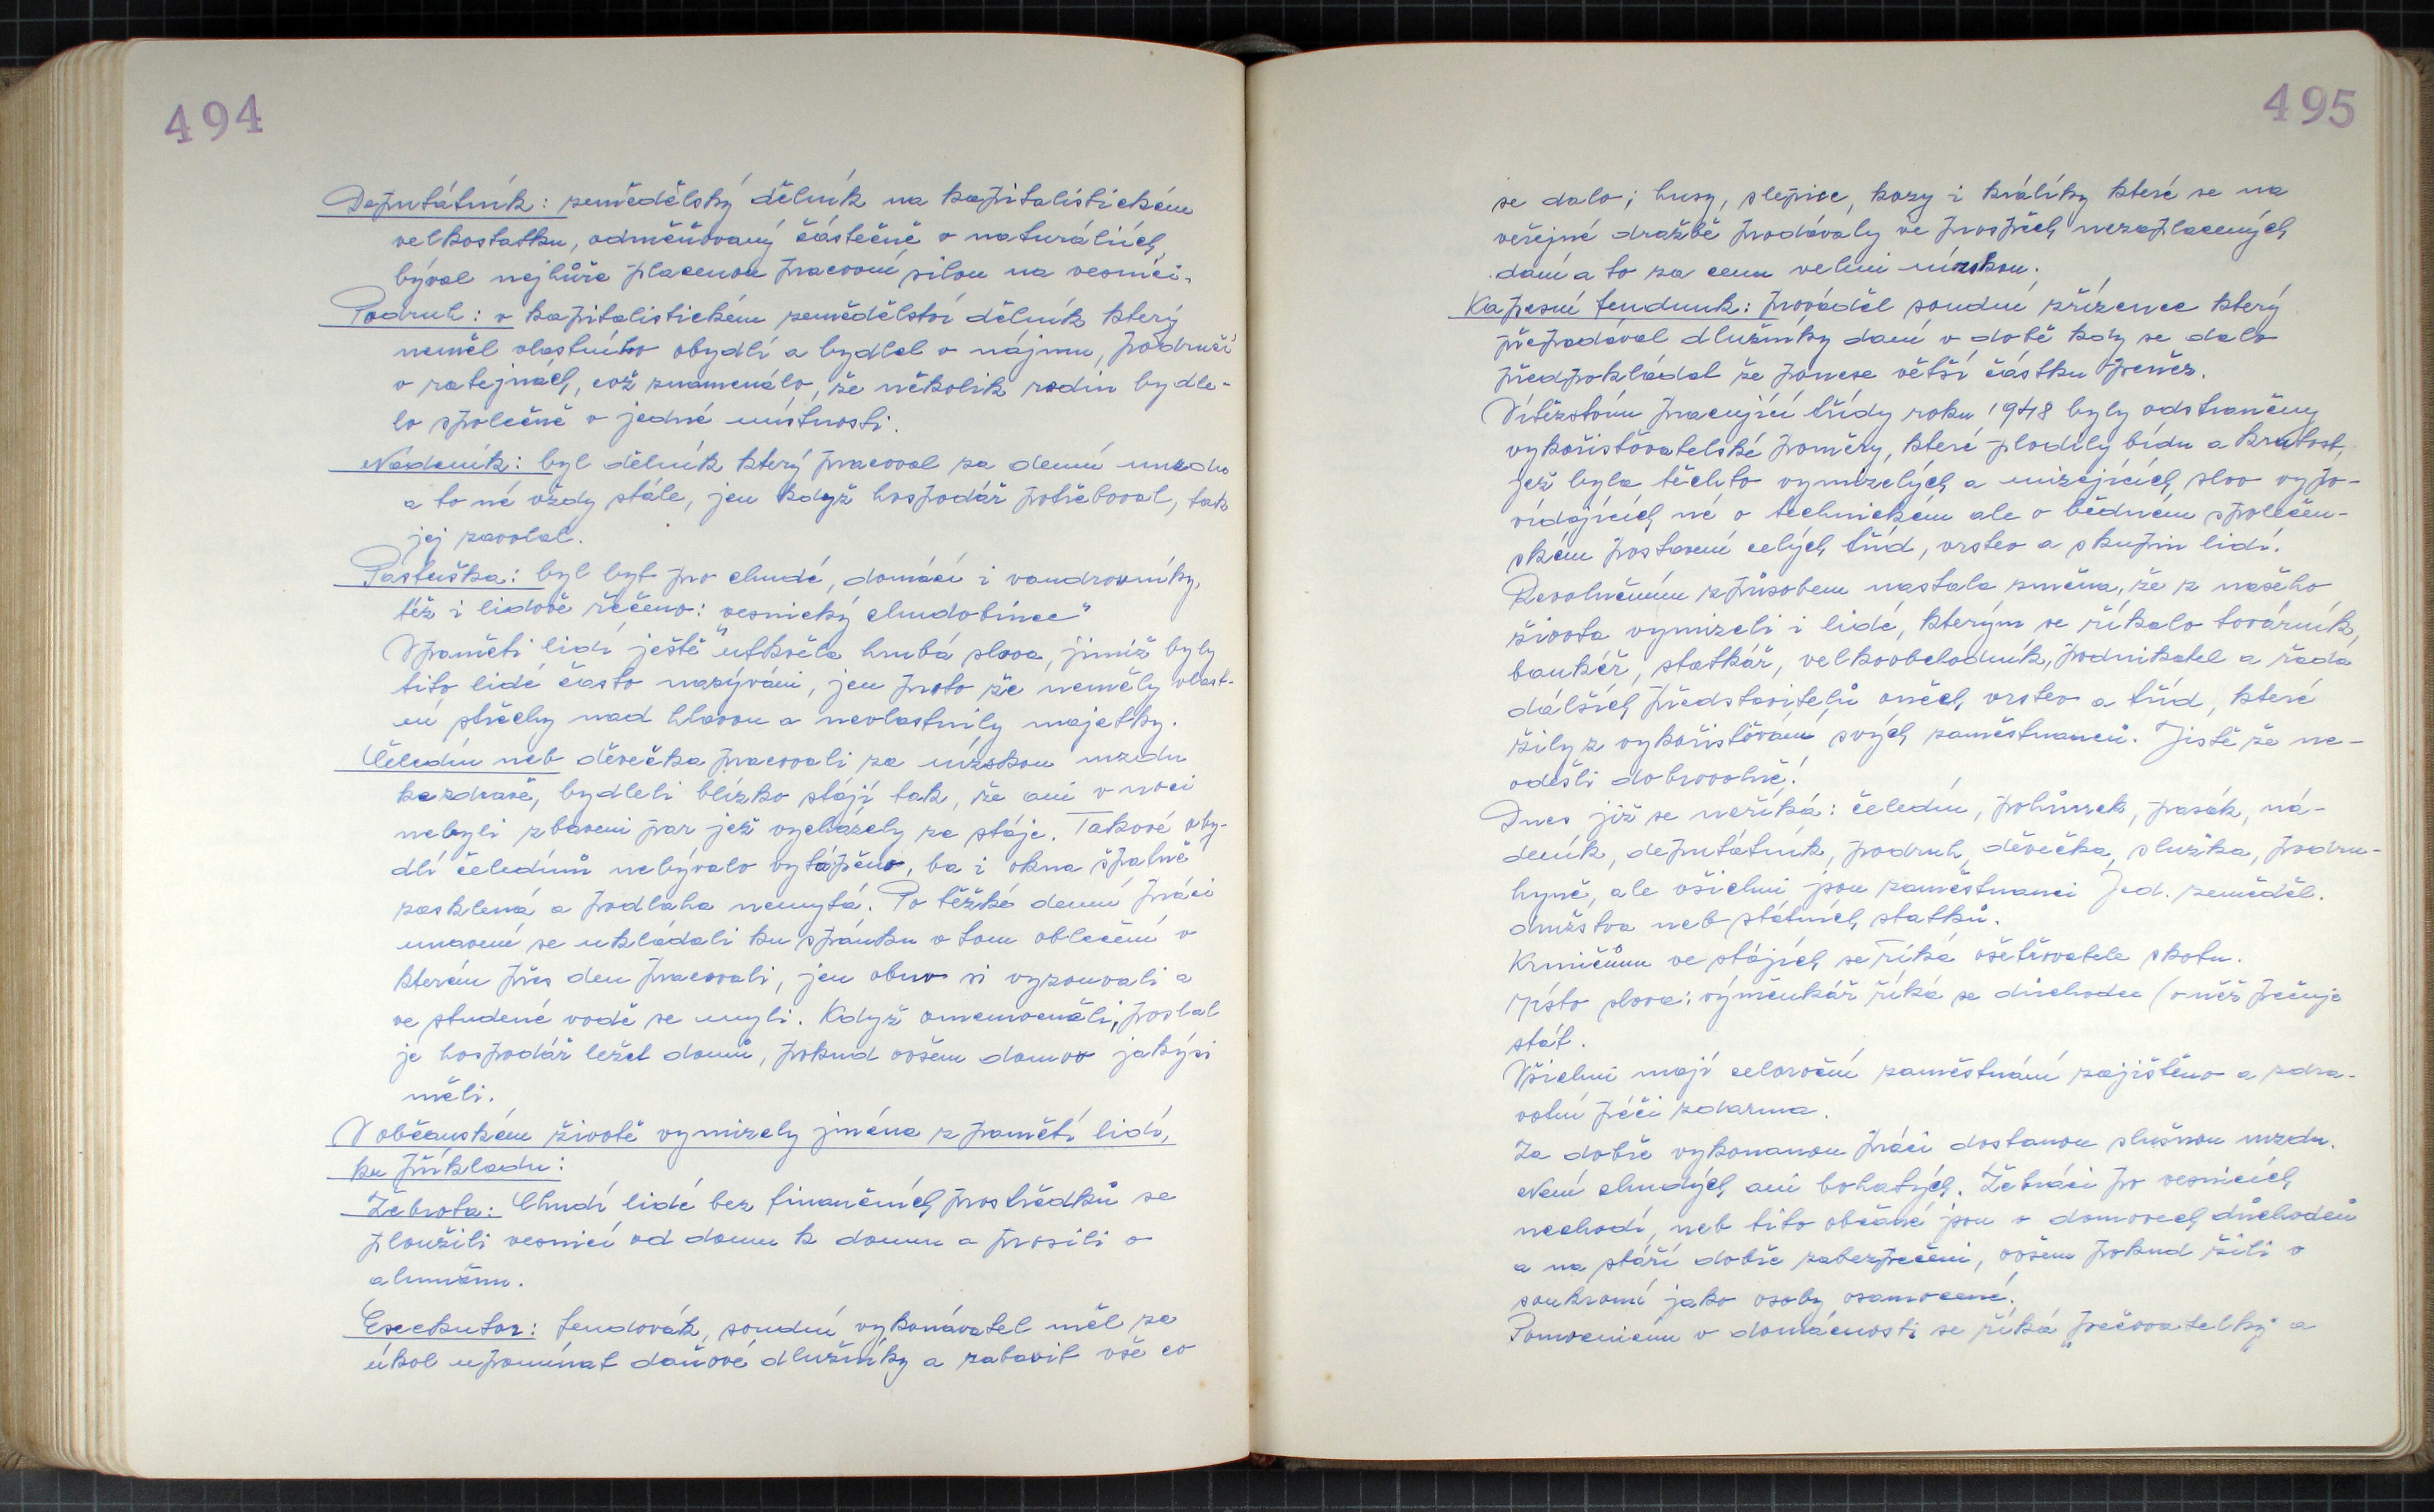 494
Deputátník: zemědělský dělník na kapitalistickém
velkostatku, odměňovaný částečně v naturáliích,
býval nejhůře placenou pracovní silou na vesnici.
Podruh: v kapitalistickém zemědělství dělník který
neměl vlastního obydlí a bydlel v nájmu, podruzi
v ratejnách, což znamenalo, že několik rodin bydle-
lo společně v jedné místnosti.
Nádeník: byl dělník který pracoval za denní mzdu
a to né vždy stále, jen když hospodář potřeboval, tak
jej zavolal.
Pastuška: byl byt pro chudé, domácí i vandrovníky,
též i lidově řečeno: vesnický chudobinec"
V paměti lidí ještě utkvěla hrubá slova, jimiž byly
tito lidé často nazýváni, jen proto že neměly vlast-
ní střechy nad hlavou a nevlastnily majetky.
Čeledín neb děvečka pracovali za nízskou mzdu
bezdravě, bydleli blízko stájí tak, že ani v noci
nebyli zbaveni par jež vycházely ze stáje. Takové oby-
dlí čeledínů nebývalo vytápěno, ba i okna špatně
zasklená a podlaha nemytá. Po těžké denní práci
unavené se ukládali ku spánku v tom oblečení v
kterém přes den pracovali, jen obuv si vyzouvali a
ve studené vodě se myli. Když onemocněli, poslal
je hospodář ležet domů, pokud ovšem domov jakýsi
měli.
V občanském životě vymizely jména z paměti lidí,
ku příkladu:
Žebrota: Chudí lidé bez finančních prostředků se
ploužili vesnicí od domu k domu a prosili o
almužnu.
Exekutor: fendovák, soudní vykonávatel měl za
úkol upomínat daňové dlužníky a zabavit vše co
495
se dalo; husy, slepice, kozy i králíky které se na
veřejné dražbě prodávaly ve prospěch nezaplacených
daní a to za cenu velmi nízskou.
Kapesní fendunk: prováděl soudní zřízenec který
přepadával dlužníky daní v době kdy se dalo
předpokládat že ponese větší částku peněz.
Vítězstvím pracující třídy roku 1948 byly odstraněny
vykořisťovatelské poměry, které plodily bídu a krutost,
jež byla těchto vymizelých a mizejících slov vypo-
vídajících né o technickém ale o bědném společen-
ském postavení celých tříd, vrstev a skupin lidí.
Revolučním způsobem nastala změna, že z našeho
života vymizeli i lidé, kterým se říkalo továrník,
bankéř, statkář, velkoobchodník, podnikatel a řada
dálších představitelů oněch vrstev a tříd, které
žily z vykořisťování svých zaměstnanců. Jistě že ne-
odešli dobrovolně!
Dnes již se neříká: čeledín, pohůnek, pasák, ná-
deník, deputátník, podruh, děvečka, služka, podru-
hyně, ale všichni jsou zaměstnanci Jed. zeměděl.
družstva neb státních statků.
Krmičům ve stájích se říká ošetřovatele skotu.
Místo slova: výměnkář říká se důchodce (o něž pečuje
stát.
Všichni mají celoroční zaměstnání zajištěno a zdra-
votní péči zdarma.
Za dobře vykonanou práci dostanou slušnou mzdu.
Není chudých ani bohatých. Žebráci po vesnicích
nechodí, neb tito občané jsou v domovech důchodců
a na stáří dobře zabezpečeni, ovšem pokud žili v
soukromí jako osoby osamocené.
Pomocnicím v domácnosti se říká „pečovatelky" a